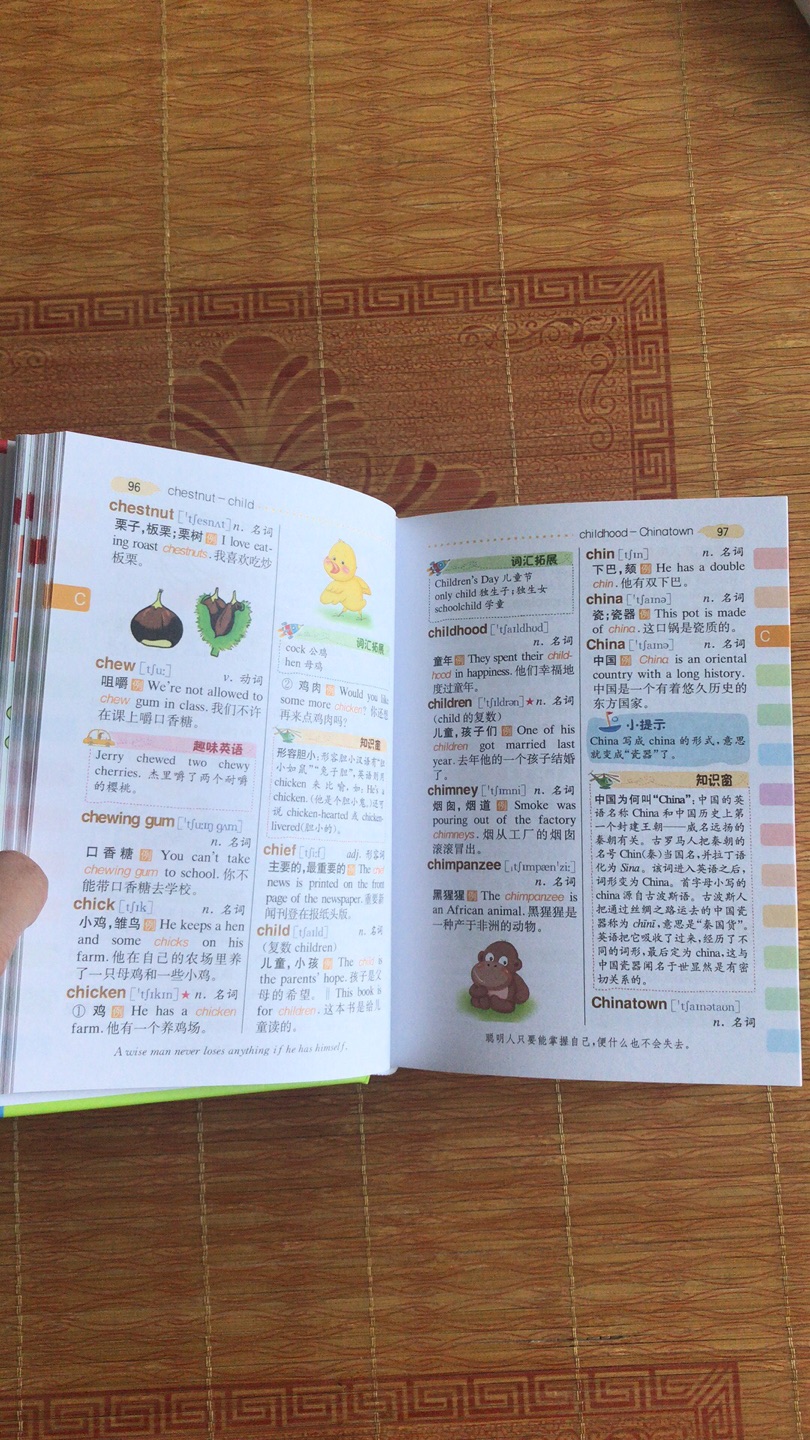 96 chestnut – child
chestnut [ˈtʃesnʌt] n. 名词
栗子,板栗;栗树 例 I love eat-
ing roast chestnuts. 我喜欢吃炒
板栗。
C
chew [tʃuː] v. 动词
咀嚼 例 We're not allowed to
chew gum in class. 我们不许
在课上嚼口香糖。
趣味英语
Jerry chewed two chewy
cherries. 杰里嚼了两个耐嚼
的樱桃。
chewing gum [ˈtʃuːɪŋ ɡʌm]
n. 名词
口香糖 例 You can't take
chewing gum to school. 你不
能带口香糖去学校。
chick [tʃɪk] n. 名词
小鸡,雏鸟 例 He keeps a hen
and some chicks on his
farm. 他在自己的农场里养
了一只母鸡和一些小鸡。
chicken [ˈtʃɪkɪn] ★ n. 名词
① 鸡 例 He has a chicken
farm. 他有一个养鸡场。
词汇拓展
cock 公鸡
hen 母鸡
② 鸡肉 例 Would you like
some more chicken? 你还想
再来点鸡肉吗?
知识窗
形容胆小:形容胆小汉语有“胆
小如鼠”“兔子胆”,英语则用
chicken 来比喻,如: He's a
chicken. (他是个胆小鬼。)还可
说 chicken-hearted 或 chicken-
livered(胆小的)。
chief [tʃiːf] adj. 形容词
主要的,最重要的 例 The chief
news is printed on the front
page of the newspaper. 重要新
闻刊登在报纸头版。
child [tʃaɪld] n. 名词
(复数 children)
儿童,小孩 例 The child is
the parents' hope. 孩子是父
母的希望。‖ This book is
for children. 这本书是给儿
童读的。
A wise man never loses anything if he has himself.
childhood – Chinatown 97
词汇拓展
Children's Day 儿童节
only child 独生子;独生女
schoolchild 学童
childhood [ˈtʃaɪldhʊd]
n. 名词
童年 例 They spent their child-
hood in happiness. 他们幸福地
度过童年。
children [ˈtʃɪldrən] ★ n. 名词
(child 的复数)
儿童,孩子们 例 One of his
children got married last
year. 去年他的一个孩子结婚
了。
chimney [ˈtʃɪmni] n. 名词
烟囱,烟道 例 Smoke was
pouring out of the factory
chimneys. 烟从工厂的烟囱
滚滚冒出。
chimpanzee [ˌtʃɪmpænˈziː]
n. 名词
黑猩猩 例 The chimpanzee is
an African animal. 黑猩猩是
一种产于非洲的动物。
chin [tʃɪn] n. 名词
下巴,颏 例 He has a double
chin. 他有双下巴。
china [ˈtʃaɪnə] n. 名词
瓷;瓷器 例 This pot is made
of china. 这口锅是瓷质的。
China [ˈtʃaɪnə] n. 名词
中国 例 China is an oriental
country with a long history.
中国是一个有着悠久历史的
东方国家。
C
小提示
China 写成 china 的形式,意思
就变成“瓷器”了。
知识窗
中国为何叫“China”:中国的英
语名称 China 和中国历史上第
一个封建王朝——威名远扬的
秦朝有关。古罗马人把秦朝的
名号 Chin(秦)当国名,并拉丁语
化为 Sina。该词进入英语之后,
词形变为 China。首字母小写的
china 源自古波斯语。古波斯人
把通过丝绸之路运去的中国瓷
器称为 chīnī,意思是“秦国货”。
英语把它吸收了过来,经历了不
同的词形,最后定为 china,这与
中国瓷器闻名于世显然是有密
切关系的。
Chinatown [ˈtʃaɪnətaʊn]
n. 名词
聪明人只要能掌握自己,便什么也不会失去。